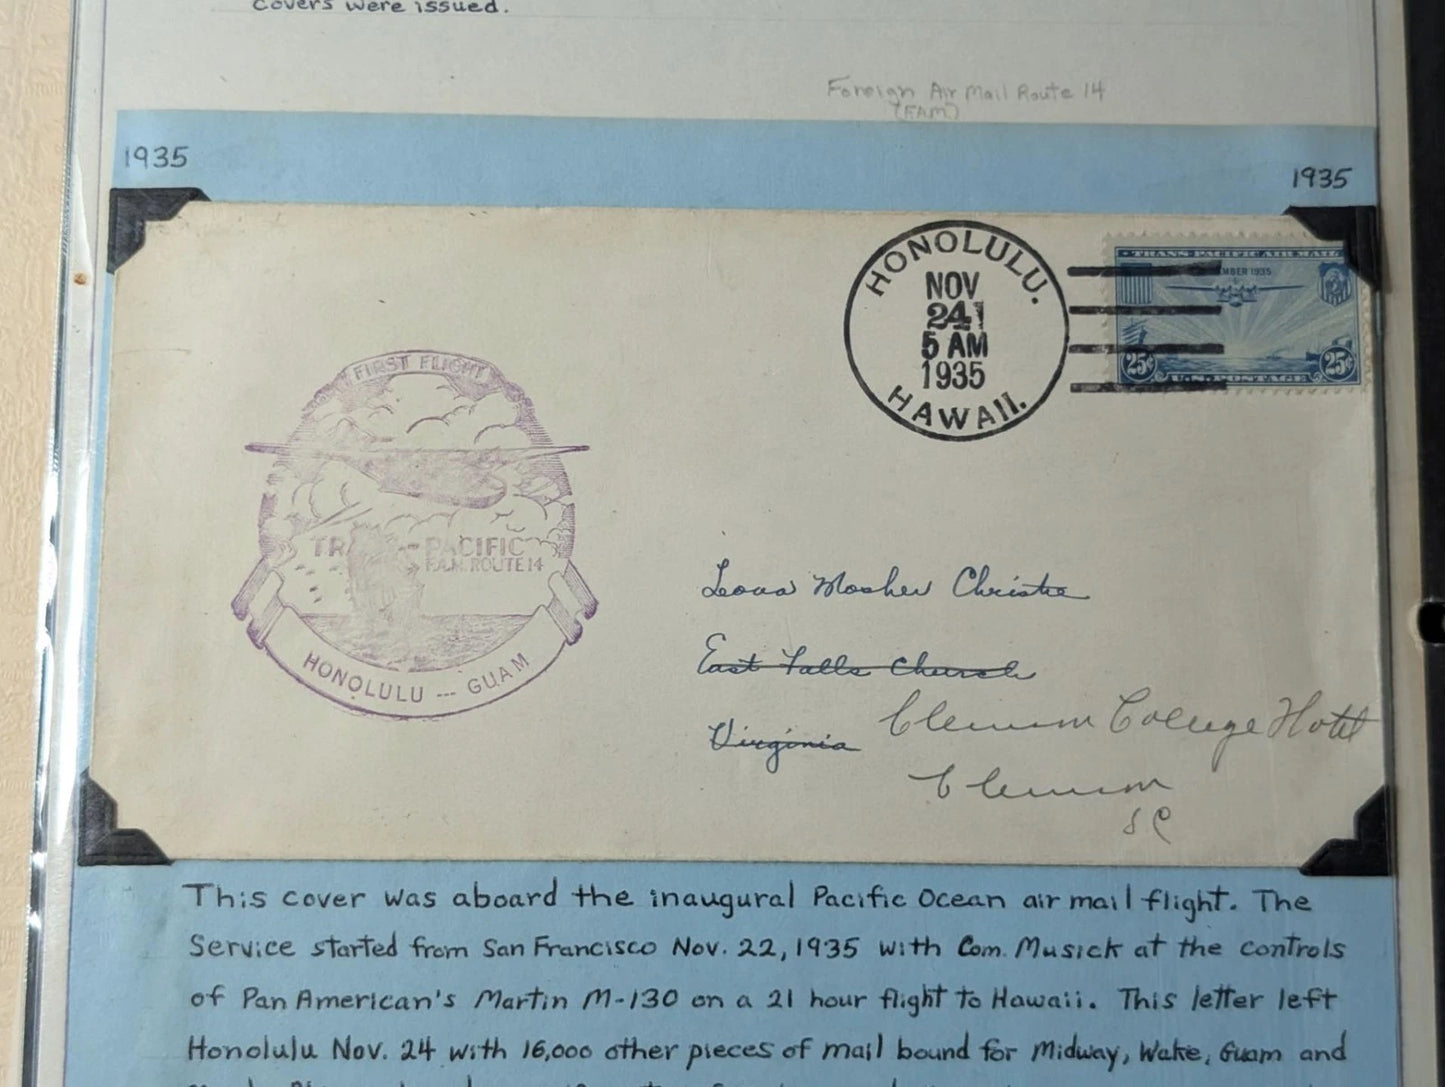 covers were issued.
Foreign Air Mail Route 14
(FAM)
1935
1935
HONOLULU.
NOV
24
5 AM
1935
HAWAII.
TRANS-PACIFIC AIR MAIL
MBER 1935
25¢ 25¢
U.S. POSTAGE
FIRST FLIGHT
TRA -PACIFIC
F.A.M. ROUTE 14
HONOLULU --- GUAM
Mosher Christie
East Falls Church
Virginia
Clemson College Hotel
Clemson
SC
This cover was aboard the inaugural Pacific Ocean air mail flight. The
Service started from San Francisco Nov. 22, 1935 with Com. Musick at the controls
of Pan American's Martin M-130 on a 21 hour flight to Hawaii. This letter left
Honolulu Nov. 24 with 16,000 other pieces of mail bound for Midway, Wake, Guam and